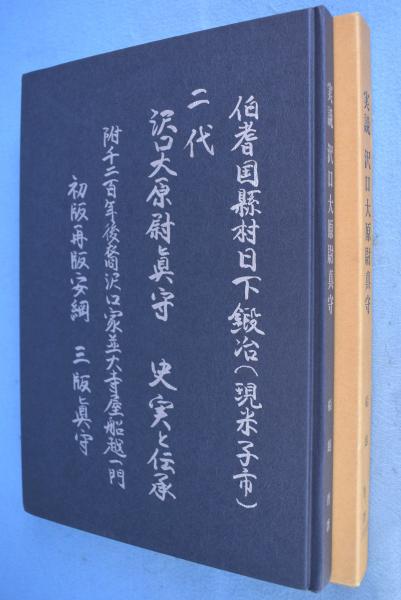 伯耆国縣村日下鍛冶(現米子市)
二代
沢口大原尉眞守 史実と伝承
附千二百年後裔沢口家並大寺屋船越一門
初版再版安綱 三版眞守
実説 沢口大原尉真守
実説 沢口大原尉真守